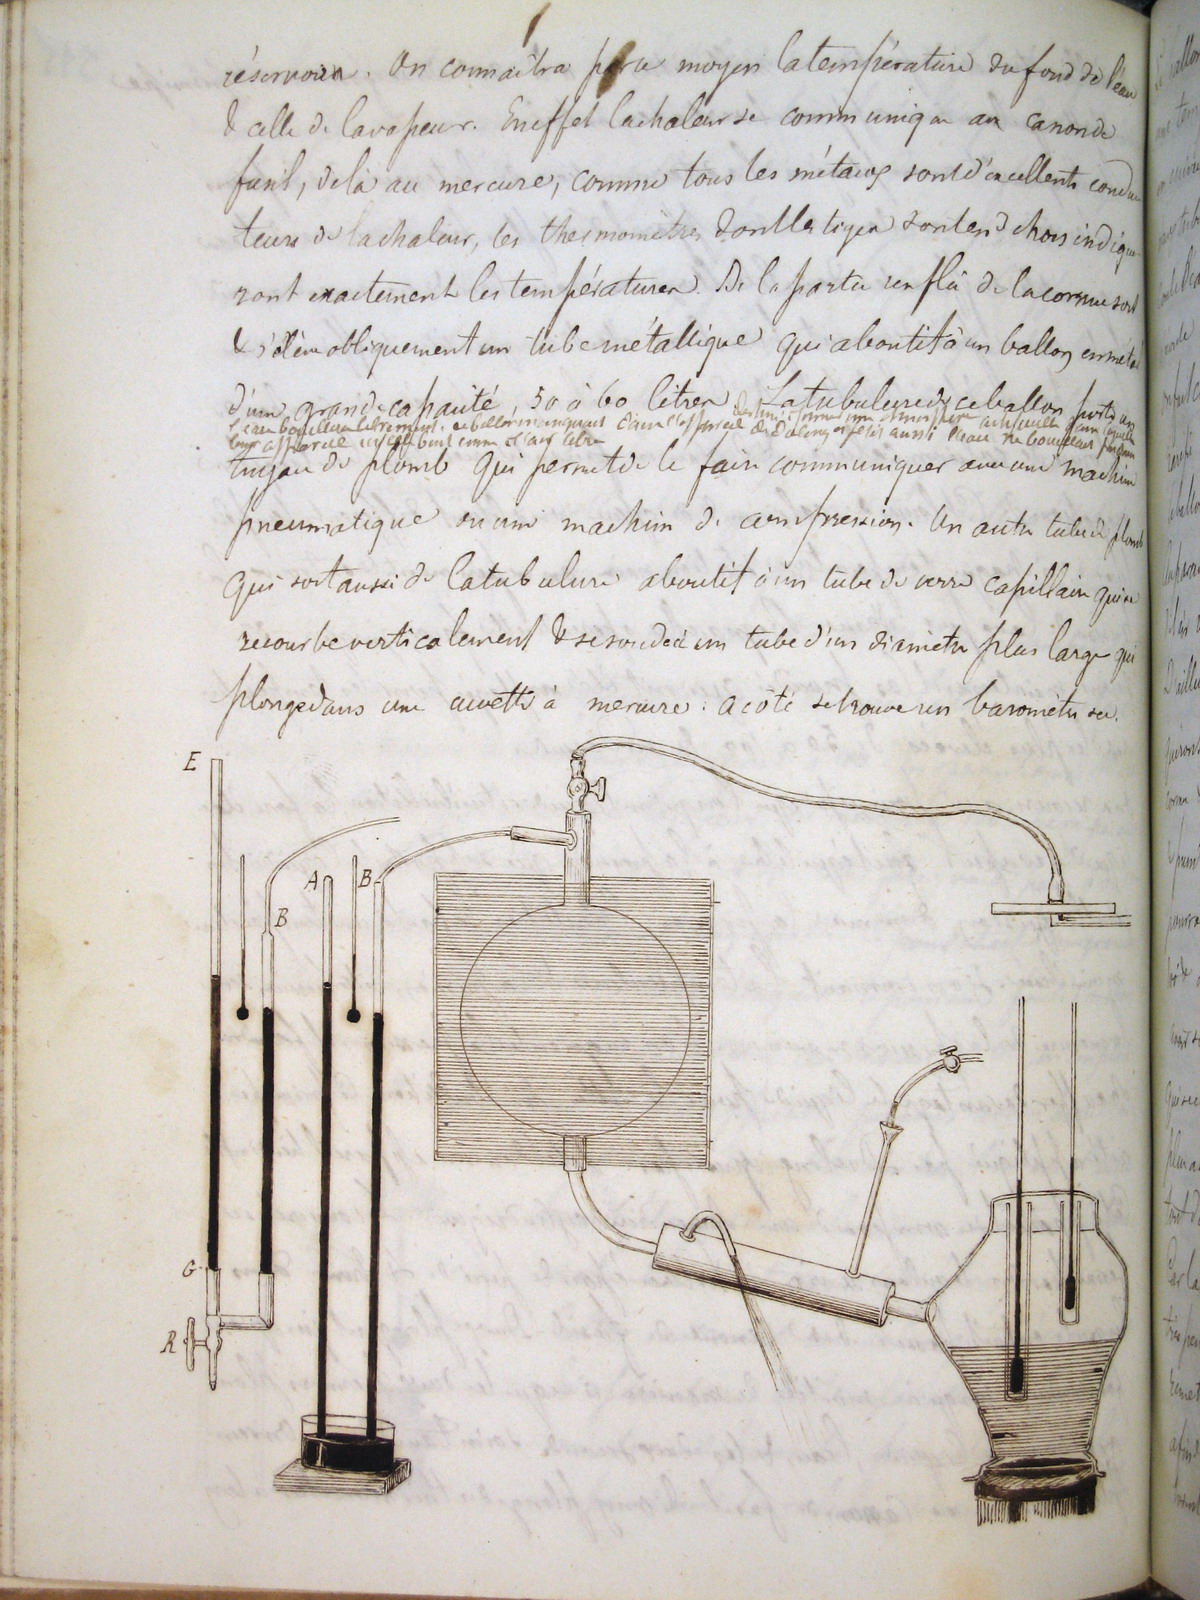 réservoir. On connaîtra par ce moyen la température du fond de l'eau
& celle de la vapeur. En effet la chaleur se communique au canon de
fusil, de là au mercure, comme tous les métaux sont d'excellents conduc
teurs de la chaleur, les thermomètres dont les tiges sont en dehors indique
ront exactement les températures. De la partie renflée de la cornue sort
& s'élève obliquement un tube métallique qui aboutit à un ballon en métal
d'une grande capacité, 50 à 60 litres. La tubulure de ce ballon porte un
destiné à former une atmosphère artificielle dans laquelle
l'eau bouillira librement. ce ballon manquait dans l'appareil de Dulong et aussi l'eau ne bouillait pas dans
leur appareil
tuyau de plomb qui permet de le faire communiquer avec une machine
pneumatique ou une machine de compression. Un autre tube de plomb
qui sort aussi de la tubulure aboutit à un tube de verre capillaire qui se
recourbe verticalement & se soude à un tube d'un diamètre plus large qui
plonge dans une cuvette à mercure. a côté se trouve un baromètre sec.
E
A
B
B
G
R